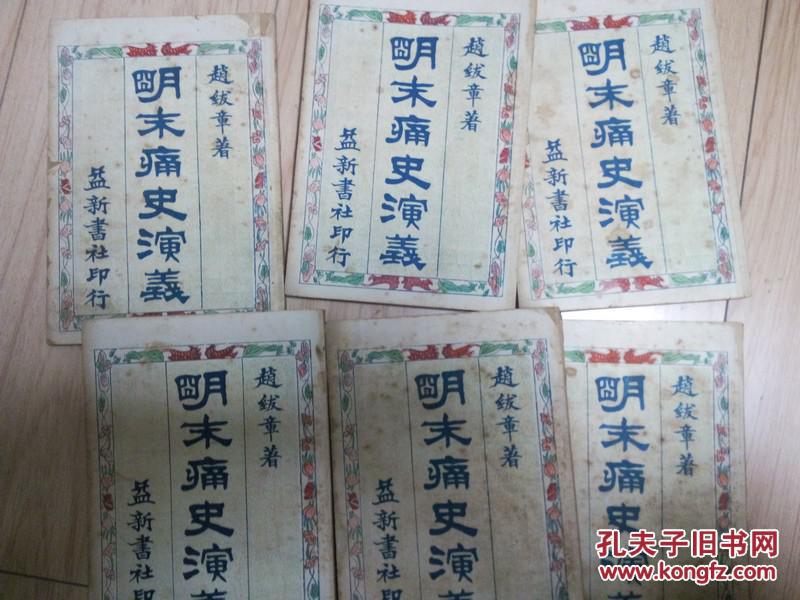 趙紱章著
明末痛史演義
益新書社印行
趙紱章著
明末痛史演義
益新書社印行
趙紱章著
明末痛史演義
益新書社印行
趙紱章著
明末痛史演義
益新書社印
趙紱章著
明末痛史演義
益新書社印
趙紱章著
明末痛史演義
孔夫子旧书网
www.kongfz.com